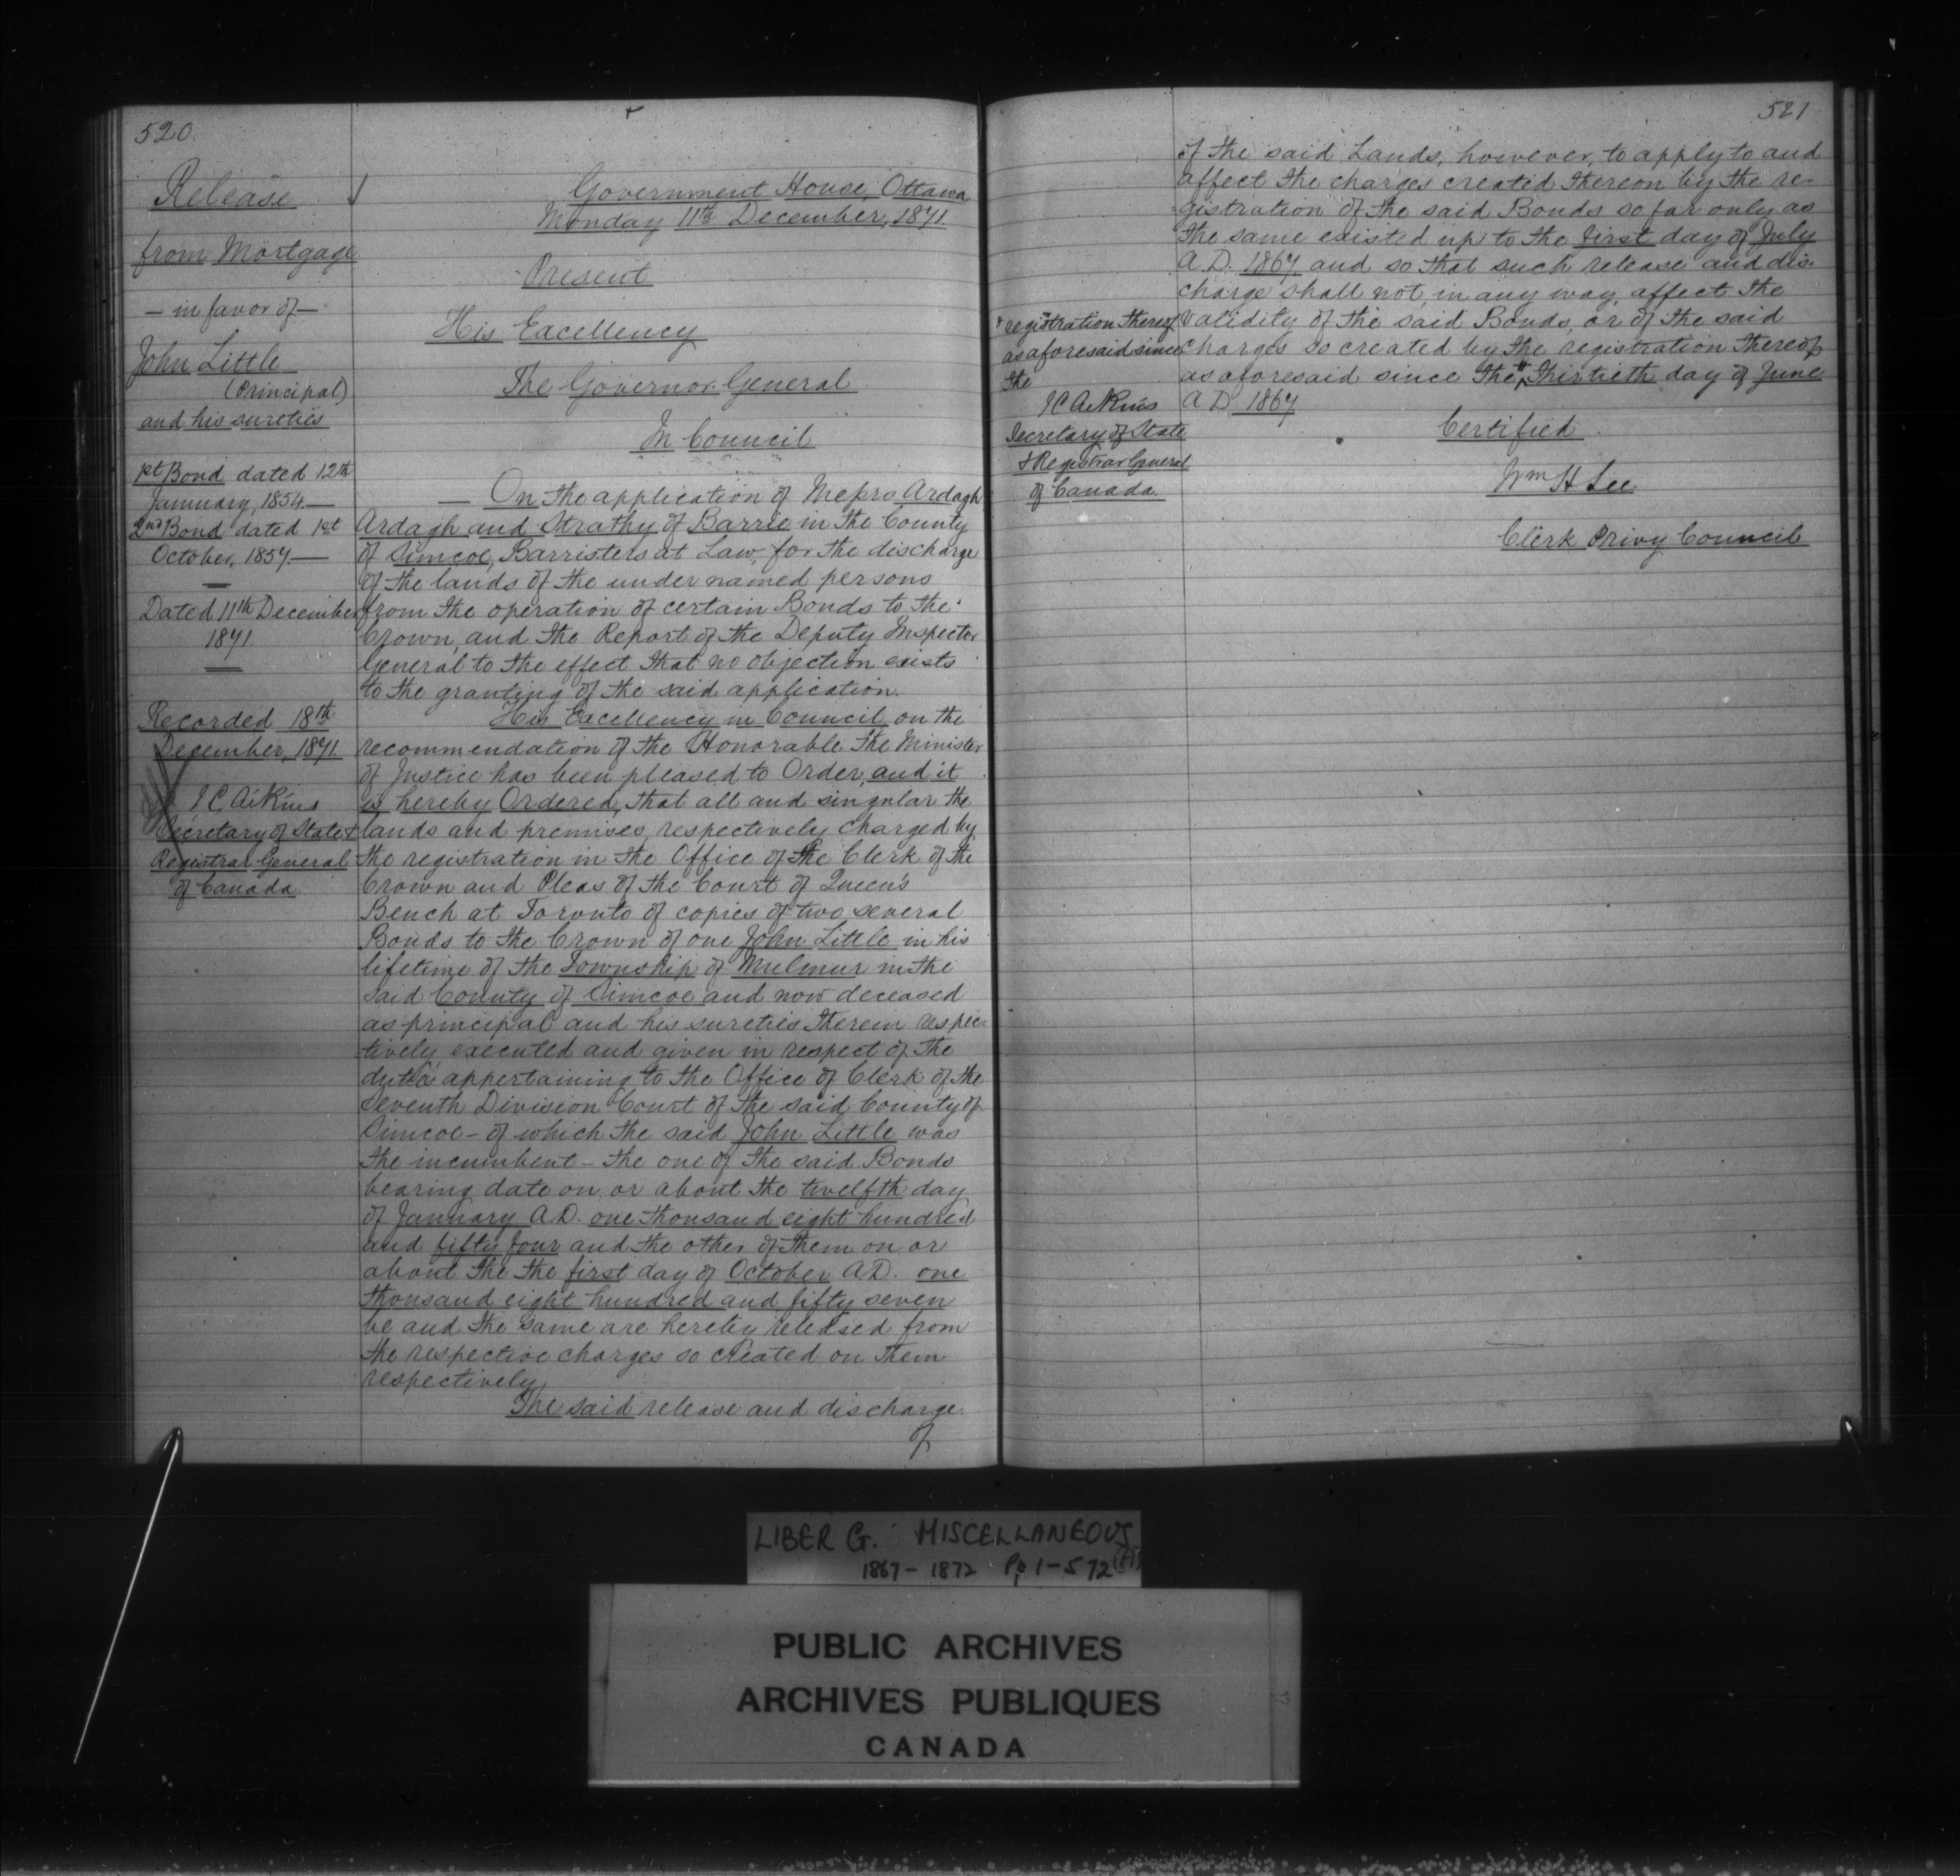 520.
Release
from Mortgage
— in favor of —
John Little
(Principal)
and his sureties
1st Bond dated 12th
January, 1854.—
2nd Bond dated 1st
October, 1857.—
Dated 11th December
1871.
Recorded 18th
December, 1871.
J C Aikins
Secretary of State &
Registrar General
of Canada.
Government House, Ottawa
Monday 11th December, 1871.
Present
His Excellency
The Governor General
In Council
— On the application of Messrs Ardagh
Ardagh and Strathy of Barrie in the County
of Simcoe, Barristers at Law, for the discharge
of the lands of the under named persons
from the operation of certain Bonds to the
Crown, and the Report of the Deputy Inspector
General to the effect that no objection exists
to the granting of the said application.
His Excellency in Council, on the
recommendation of the Honorable the Minister
of Justice has been pleased to Order, and it
is hereby Ordered, that all and singular the
lands and premises, respectively charged by
the registration in the Office of the Clerk of the
Crown and Pleas of the Court of Queen's
Bench at Toronto of copies of two several
Bonds to the Crown of one John Little in his
lifetime of the Township of Mulmur in the
said County of Simcoe and now deceased
as principal and his sureties therein respec-
tively executed and given in respect of the
duties appertaining to the Office of Clerk of the
Seventh Division Court of the said County of
Simcoe - of which the said John Little was
the incumbent - the one of the said Bonds
bearing date on or about the twelfth day
of January A.D. one thousand eight hundred
and fifty four and the other of them on or
about the the first day of October A.D. one
thousand eight hundred and fifty seven
be and the same are hereby released from
the respective charges so created on them
respectively.
The said release and discharge
of
521
of the said Lands, however, to apply to and
affect the charges created thereon by the re-
gistration of the said Bonds so far only as
the same existed up to the first day of July
A.D. 1867 and so that such release and dis-
charge shall not, in any way, affect the
validity of the said Bonds, or of the said
charges so created by the registration thereof
as aforesaid since the Thirtieth day of June
A D. 1867.
registration thereof
as aforesaid since
the
J C Aikins
Secretary of State
& Registrar General
of Canada.
Certified
Wm H Lee
Clerk Privy Council
LIBER G. MISCELLANEOUS
1867 - 1872 Pp 1-572 (A)
PUBLIC ARCHIVES
ARCHIVES PUBLIQUES
CANADA